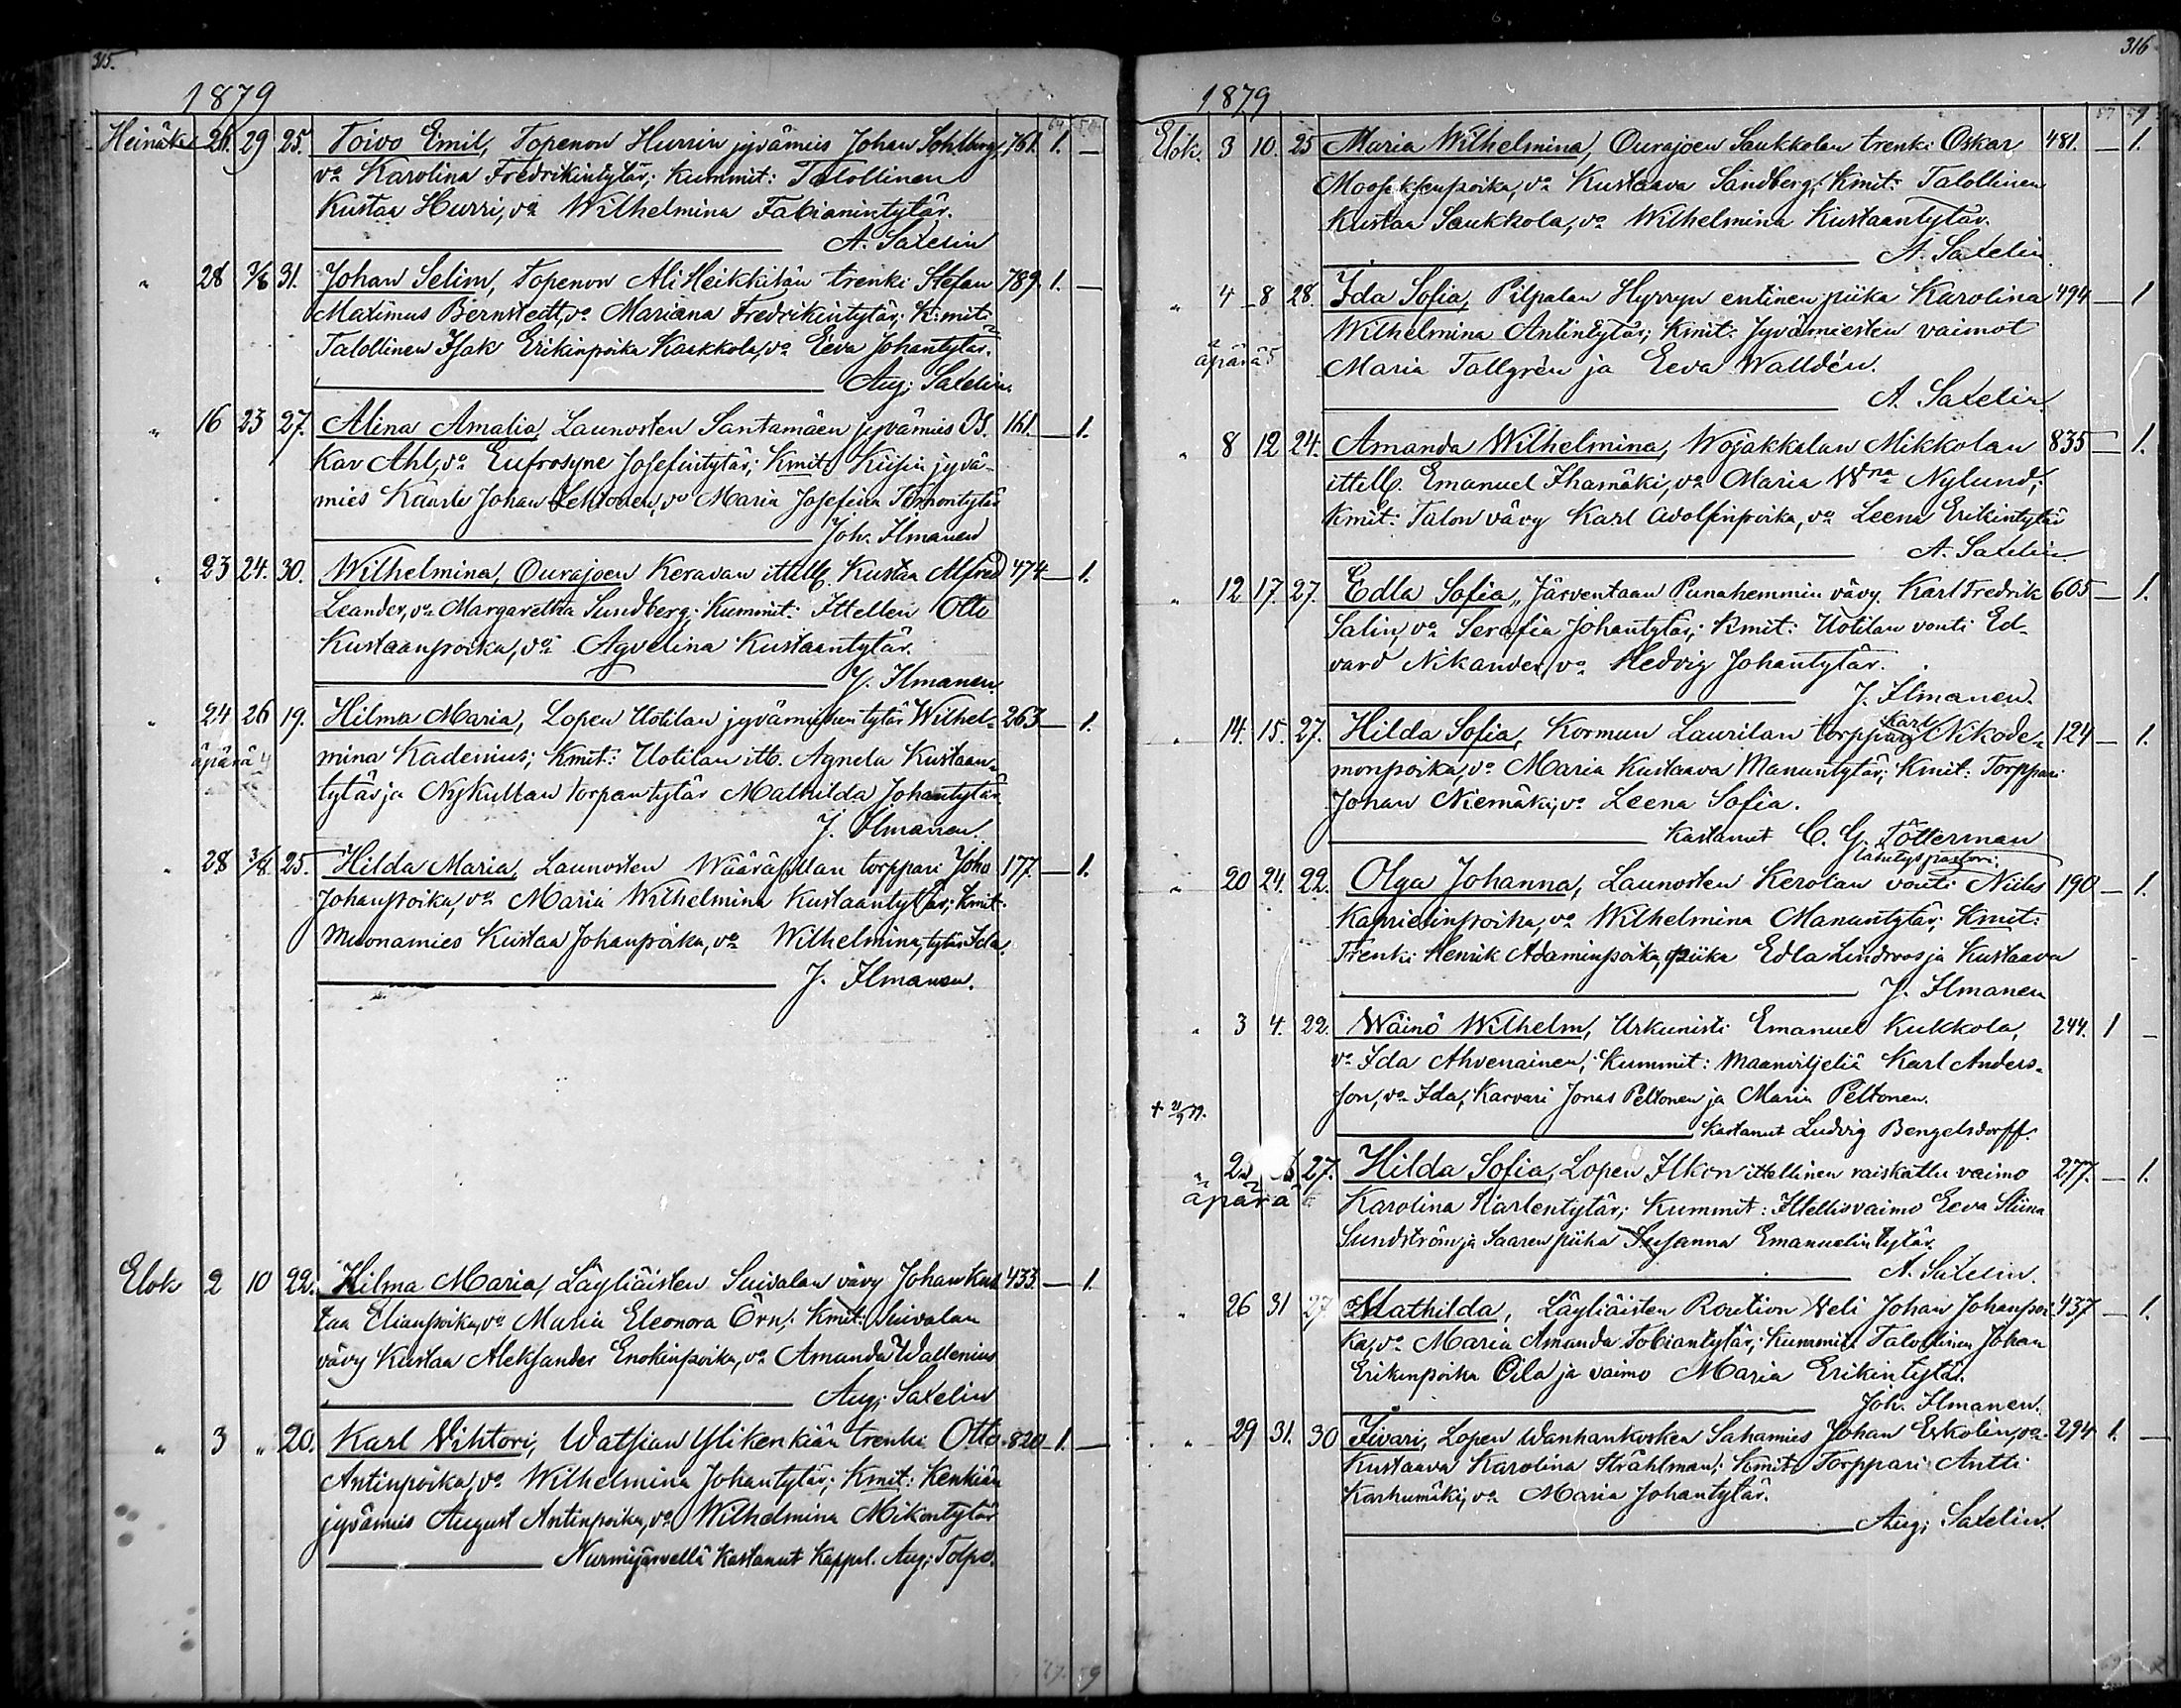 315.
1879
Heinäk. 26. 29 25. Toivo Emil, Topenon Hurrin jyvämies Johan Sohlberg 761. 1. —
vo Karolina Fredrikintytär; Kummit: Talollinen
Kustaa Hurri, vo Wilhelmina Fabianintytär.
A. Saxelin
" 28 3/8 31. Johan Selim, Topenon Ali Heikkilän trenki Stefan 789. 1. —
Maximus Bernstedt, vo Mariana Fredrikintytär; K:mit:
Talollinen Isak Erikinpoika Kaakkola, vo Eeva Johantytär.
Aug; Saxelin.
" 16 23 27. Alina Amalia, Launosten Santamäen jyvämies Os- 161. — 1.
kar Ahl, vo Eufrosyne Josefintytär; Kmit: Kiisin jyvä-
mies Kaarle Johan Lehtonen, vo Maria Josefina Simontytär
Joh. Ilmanen
" 23 24. 30. Wilhelmina, Ourajoen Keravan ittell. Kustaa Alfred 474 — 1.
Leander, vo Margaretha Sundberg; Kummit: Ittellen Otto
Kustaanpoika, vo Agvelina Kustaantytär.
J. Ilmanen.
" 24 26 19. Hilma Maria, Lopen Uotilan jyvämiehen tytär Wilhel- 263 — 1.
äpärä 4 mina Kadenius; Kmit: Uotilan itt. Agneta Kustaan-
tytär ja Nykullan torpan tytär Mathilda Johantytär
J. Ilmanen.
" 28 3/8. 25. Hilda Maria, Launosten Wääräsillan torppari Joho 177. — 1.
Johanpoika, vo Maria Wilhelmina Kustaantytär; Kmit:
Muonamies Kustaa Johanpoika, vo Wilhelmina, tytär Ida.
J. Ilmanen.
Elok 2 10 22. Hilma Maria, Läyliäisten Suivalan vävy Johan Kus- 433 — 1.
taa Elianpoika, vo Maria Eleonora Örn; Kmit: Suivalan
vävy Kustaa Aleksander Enokinpoika, vo Amanda Wallenius
Aug; Saxelin
" 3 " 20. Karl Vihtori, Watsian Ylikenkiän trenki Otto 820 1. —
Antinpoika, vo Wilhelmina Johantytär; Kmit: Kenkiän
jyvämies August Antinpoika, vo Wilhelmina Mikontytär
Nurmijärvellä kastanut Kappel. Aug; Tolpo.
316
1879
Elok. 3 10. 25 Maria Wilhelmina, Ourajoen Saukkolan trenki Oskar 481. — 1.
Mooseksenpoika, vo Kustaava Sandberg; Kmit: Talollinen
Kustaa Saukkola, vo Wilhelmina Kustaantytär.
A. Saxelin.
" 4 8 28. Ida Sofia, Pilpalan Hyrryn entinen piika Karolina 494 — 1
Wilhelmina Antintytär; Kmit: Jyvämiesten vaimot
äpärä 5 Maria Tallgrén ja Eeva Walldén.
A. Saxelin
" 8 12 24. Amanda Wilhelmina, Wojakkalan Mikkolan 835 — 1.
ittell. Emanuel Ihamäki, vo Maria Wna Nylund;
Kmit: Talon vävy Karl Adolfinpoika, vo Leena Erikintytär
A. Saxelin
" 12 17. 27. Edla Sofia, Järventaan Punahemmin vävy Karl Fredrik 605 — 1.
Salin, vo Serafia Johantytär; Kmit: Uotilan vouti Ed-
vard Nikander, vo Hedvig Johantytär.
J. Ilmanen.
" 14. 15. 27. Hilda Sofia, Kormun Laurilan torppari Karl Nikode- 124 — 1.
monpoika, vo Maria Kustaava Manuntytär; Kmit: Torppari
Johan Niemäki, vo Leena Sofia.
kastanut C. G. Tötterman
lähetyspastori.
" 20 24. 22. Olga Johanna, Launosten Kerolan vouti Niiles 190 — 1.
Kaprielinpoika, vo Wilhelmina Manuntytär; Kmit:
Trenki Henrik Adaminpoika, piika Edla Lindroos ja Kustaava
J. Ilmanen
" 3 4. 22. Wäinö Wilhelm, Urkunisti Emanuel Kukkola, 244. 1 —
vo Ida Ahvenainen; Kummit: Maanviljeliä Karl Anders-
son, vo Ida, Karvari Jonas Peltonen ja Maria Peltonen.
kastanut Ludvig Bengelsdorff.
" 27. Hilda Sofia, Lopen Ilkon ittellinen raiskattu vaimo 277. — 1.
äpärä Karolina Kaarlentytär; Kummit: Ittellisvaimo Eeva Stiina
Sundström ja Saaren piika Susanna Emanuelintytär.
A. Saxelin.
" 26 31 27 Mathilda, Läyliäisten Roution Veli Johan Johanpoi- 437 — 1.
ka, vo Maria Amanda Tobiantytär; Kummit: Talollinen Johan
Erikinpoika Oila ja vaimo Maria Erikintytär.
Joh. Ilmanen.
" 29 31. 30 Iivari, Lopen Wanhankosken Sahamies Johan Eskolin, vo 294 1. —
Kustaava Karolina Stråhlman; Kmit: Torppari Antti
Karhumäki, vo Maria Johantytär.
Aug; Saxelin.